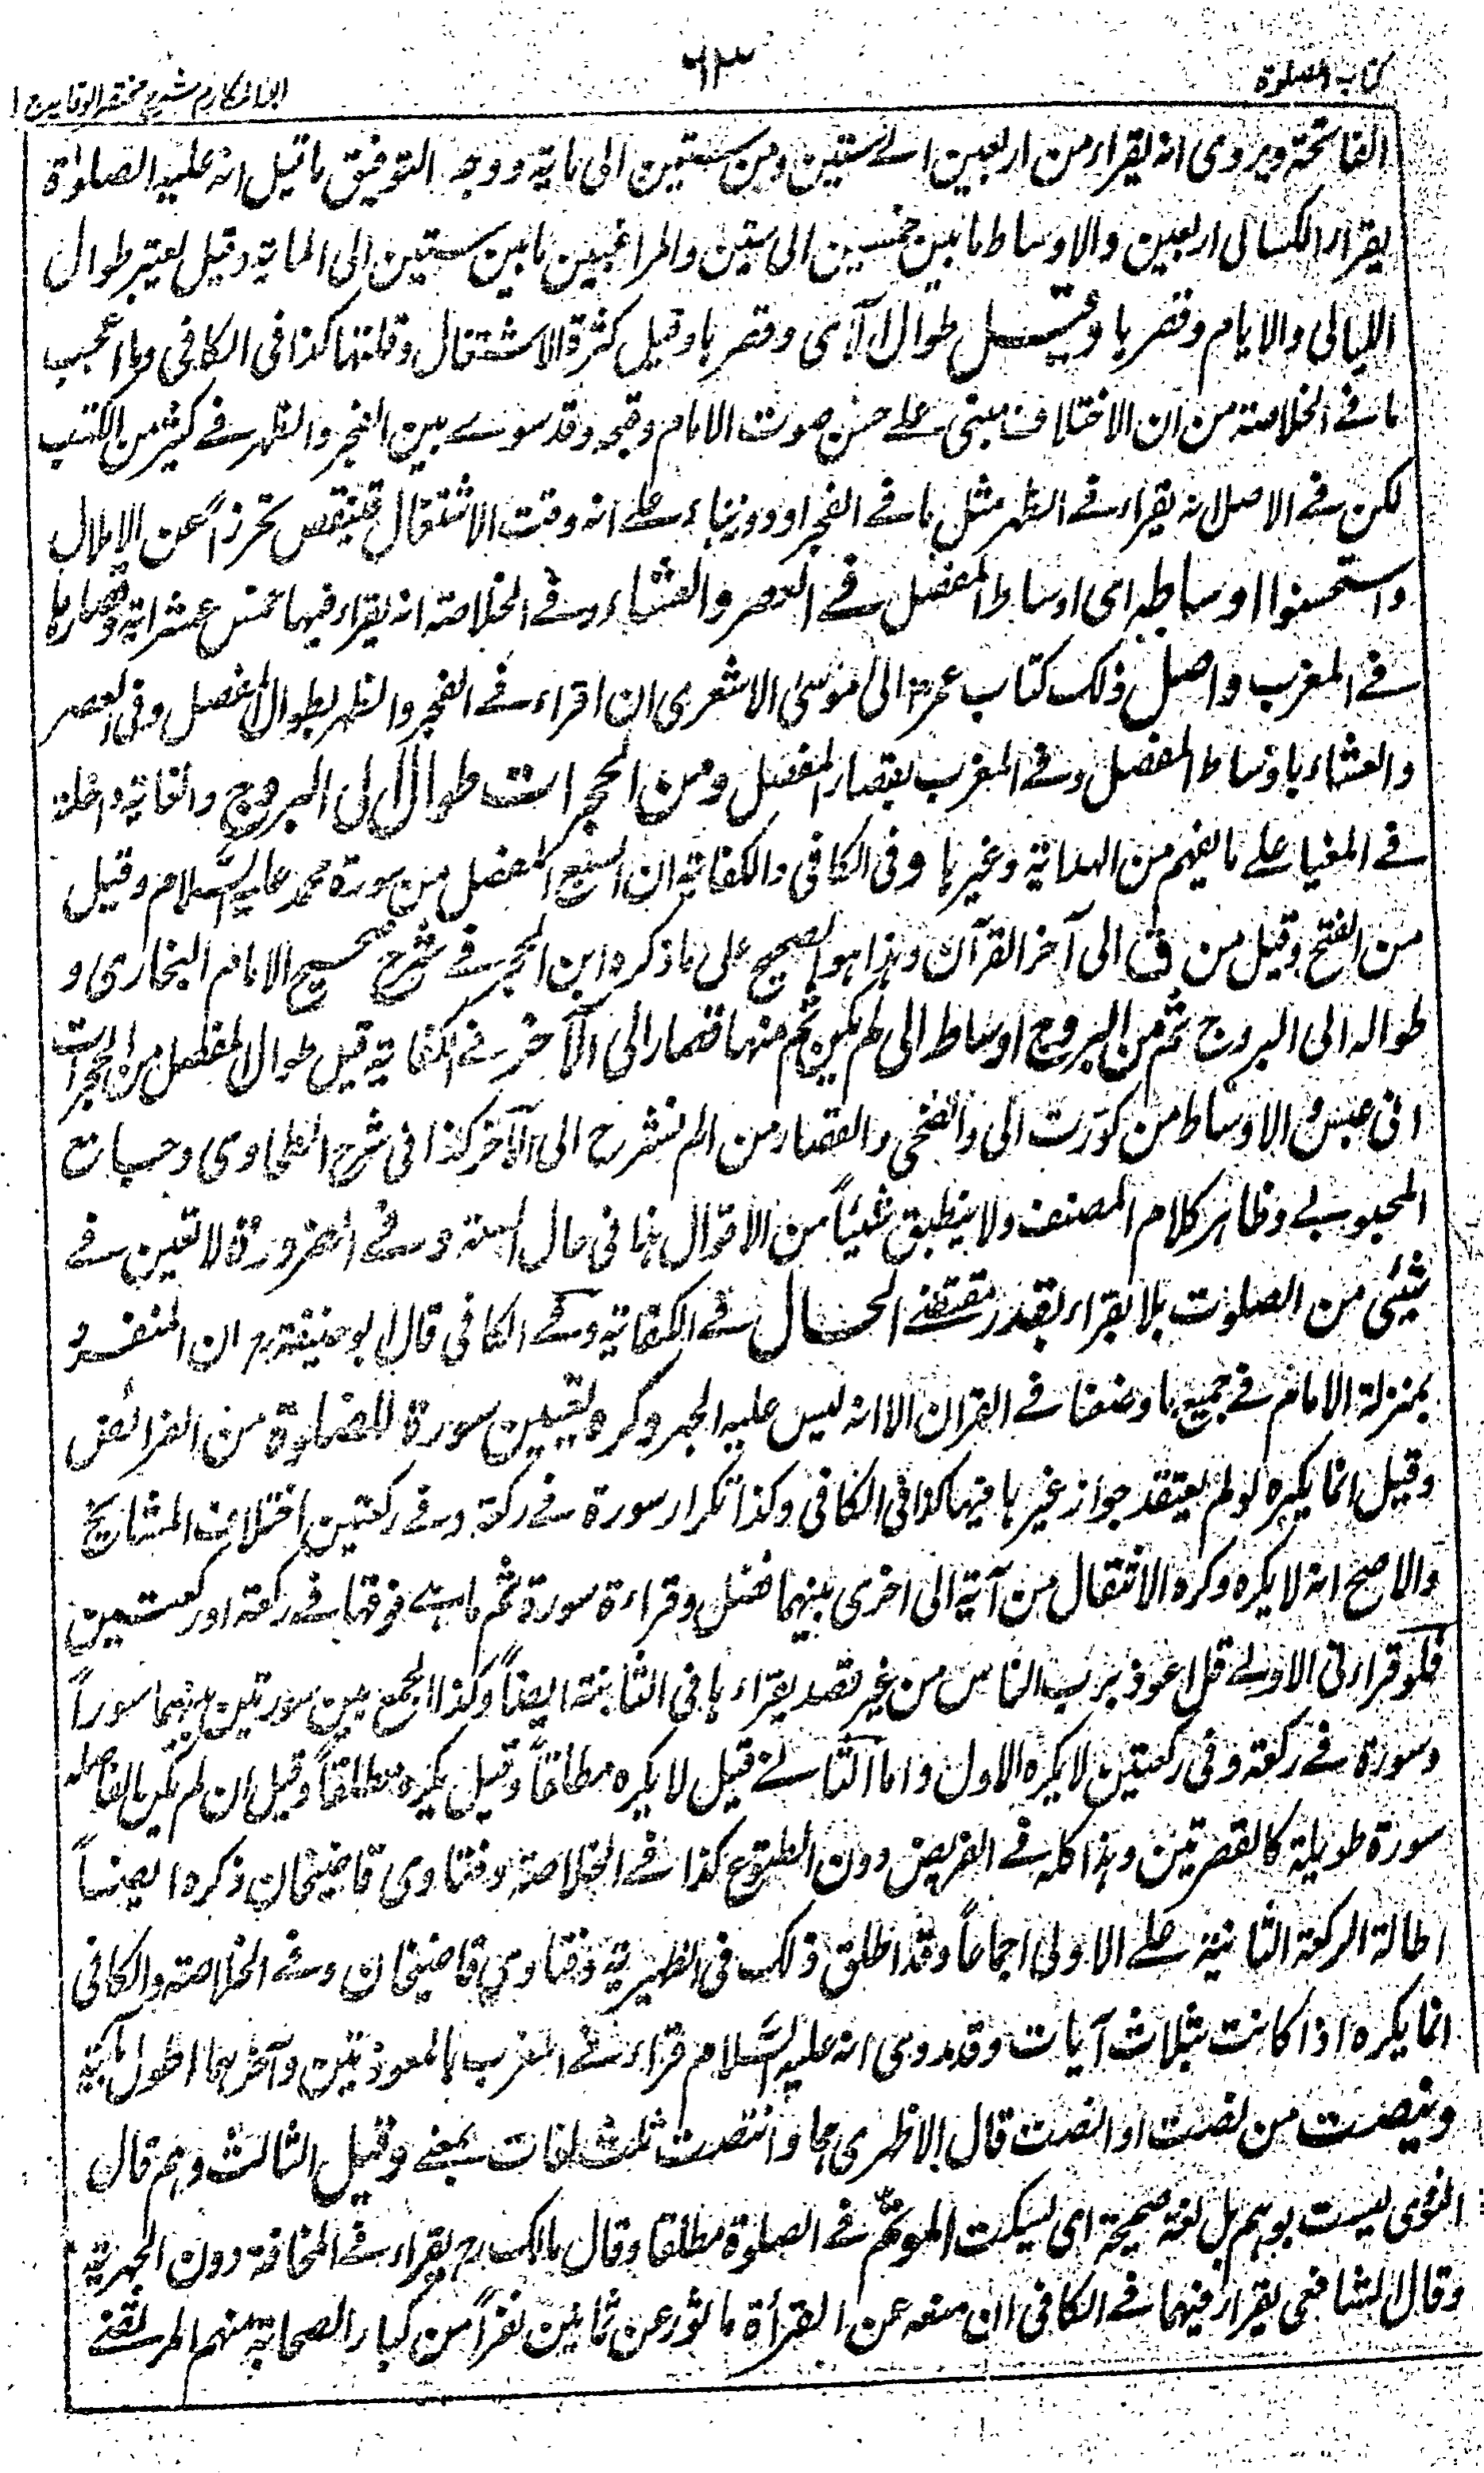 كتاب الصلوة
٦٣
ابو المكارم شرح مختصر الوقاية ج ١
الفاتحة ويروى انه يقراء من اربعين الے ستين ومن ستين الى ماية ووجه التوفيق ما قيل انه عليه الصلوٰة
يقراء الكسالى اربعين والاوساط ما بين خمسين الى ستين والمراغبين ما بين ستين الى الماية وقيل يعتبر طوال
الليالى والايام وقصرها وقيل طوال الآى وقصرها وقيل كثرة الاشتغال وقلتها كذا فى الكافى وما اعجب
ما فے الخلاصة من ان الاختلاف مبنى علے حسن صوت الامام وقبحه وقد سوے بين الفجر والظهر فے كثير من الكتب
لكن فے الاصل انه يقراء فے الظهر مثل ما فے الفجر او دونه بناء علے انه وقت الاشتغال فينقص تحرزاً عن الاملال
واستحسنوا اوساطه اى اوساط المفصل فے العصر والعشاء وفے الخلاصة انه يقراء فيها خمس عشر اية وقصارها
فے المغرب واصل ذلك كتاب عمر رض الى موسىٰ الاشعرى ان اقراء فے الفجر والظهر بطوال المفصل وفى العصر
والعشاء باوساط المفصل وفے المغرب بقصار المفصل ومن الحجرات طوال الى البروج والغاية داخلة
فے المغيا علے ما يفهم من الهداية وغيرها وفى الكافى والكفاية ان السبع المفصل من سورة محمد عليه السلام وقيل
من الفتح وقيل من ق الى آخر القرآن وهذا هو الصحيح على ما ذكره ابن الحجر فے شرح صحيح الامام البخارى و
طواله الى البروج ثم من البروج اوساط الى لم يكن ثم منها قصار الى الآخر فے الكفاية قيل طوال المفصل من الحجرات
الى عبس والاوساط من كورت الى والضحى والقصار من الم نشرح الى الآخر كذا فى شرح الطحاوى وحسبات
المحبوبے وظاهر كلام المصنف ولا ينطبق شيئاً من الاقوال هذا فى حال السعة وفے الضرورة لا تعين فے
شيئ من الصلوت بلا يقراء بقدر مقتضے الحال فے الكفاية وفے الكافى قال ابو حنيفة رح ان المنفرد
بمنزلة الامام فے جميع ما وصفنا فے القران الا انه ليس عليه الجهر وكره تعيين سورة للصلوة من الفرائض
وقيل انما يكره لو لم يعتقد جواز غيرها فيها كذا فى الكافى وكذا تكرار سورة فے ركعة وفے ركعتين اختلاف المشايخ
والاصح انه لا يكره وكره الانتقال من آية الى اخرى بينهما فصل وقراءة سورة ثم ما هے فوقها فے ركعة او ركعتين
فلو قراء فى الاولے قل اعوذ برب الناس من غير قصد يقراء ها فى الثانية ايضاً وكذا الجمع بين سورتين بينهما سوراً
وسورة فے ركعة وفى ركعتين لا يكره الاول واما الثانے قيل لا يكره مطلقاً وقيل يكره مطلقاً وقيل ان لم يكن الفاصلة
سورة طويلة كالقصرتين وهذا كله فے الفريض دون التطوع كذا فے الخلاصة وفتاوى قاضيخان ذكره ايضاً
اطالة الركعة الثانية علے الاولى اجماعاً وقد اطلق ذلك فى الظهيرية وفتاوى قاضيخان وفے الخلاصة والكافى
انما يكره اذا كانت بثلاث آيات وقد روى انه عليه السلام قراء فے المغرب بالمعوذتين وآخرهما اطول بآية
وينصت من نصت او انصت قال الازهرى هما وانتصت ثلث لغات بمعنے وقيل الثالث وهم قال
النووى ليست بوهم بل لغة صحيحة اى ليسكت الموتم فے الصلوة مطلقا وقال مالك رح يقراء فے المخافة دون الجهرية
وقال الشافعى يقراء فيهما فے الكافى ان منعه عن القرأة ماثور عن ثمانين نفراً من كبار الصحابة منهم المرتضے